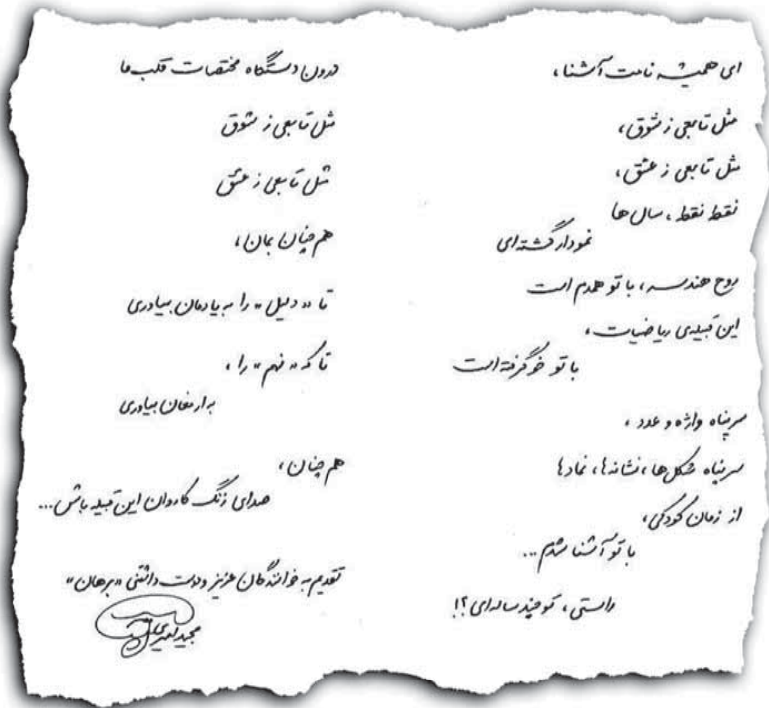 ای همیشه نامت آشنا،
مثل تابعی ز شوق،
مثل تابعی ز عشق،
نقطه نقطه، سال‌ها
نمودار گشته‌ای
روح هندسه، با تو همدم است
این قبیله‌ی ریاضیات،
با تو خو گرفته است
سرپناه واژه و عدد،
سرپناه شکل‌ها، نشانه‌ها، نمادها
از زمان کودکی،
با تو آشنا شدم...
راستی، تو چند ساله‌ای؟!
درون دستگاه مختصات قلب ما
مثل تابعی ز شوق
مثل تابعی ز عشق
هم‌چنان بمان،
تا «دلیل» را به یادمان بیاوری
تا که «فهم» را،
به ارمغان بیاوری
هم‌چنان،
صدای زنگ کاروان این قبیله باش...
تقدیم به خوانندگان عزیز و دوست داشتنی «برهان»